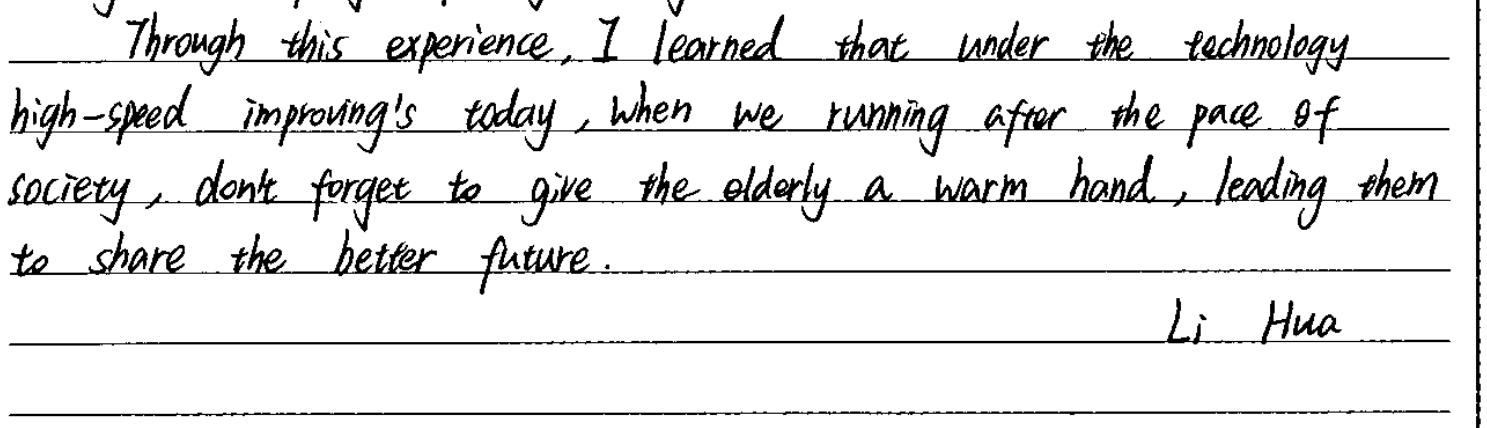 Through this experience, I learned that under the technology
high-speed improving's today, when we running after the pace of
society, don't forget to give the elderly a warm hand, leading them
to share the better future.
Li Hua